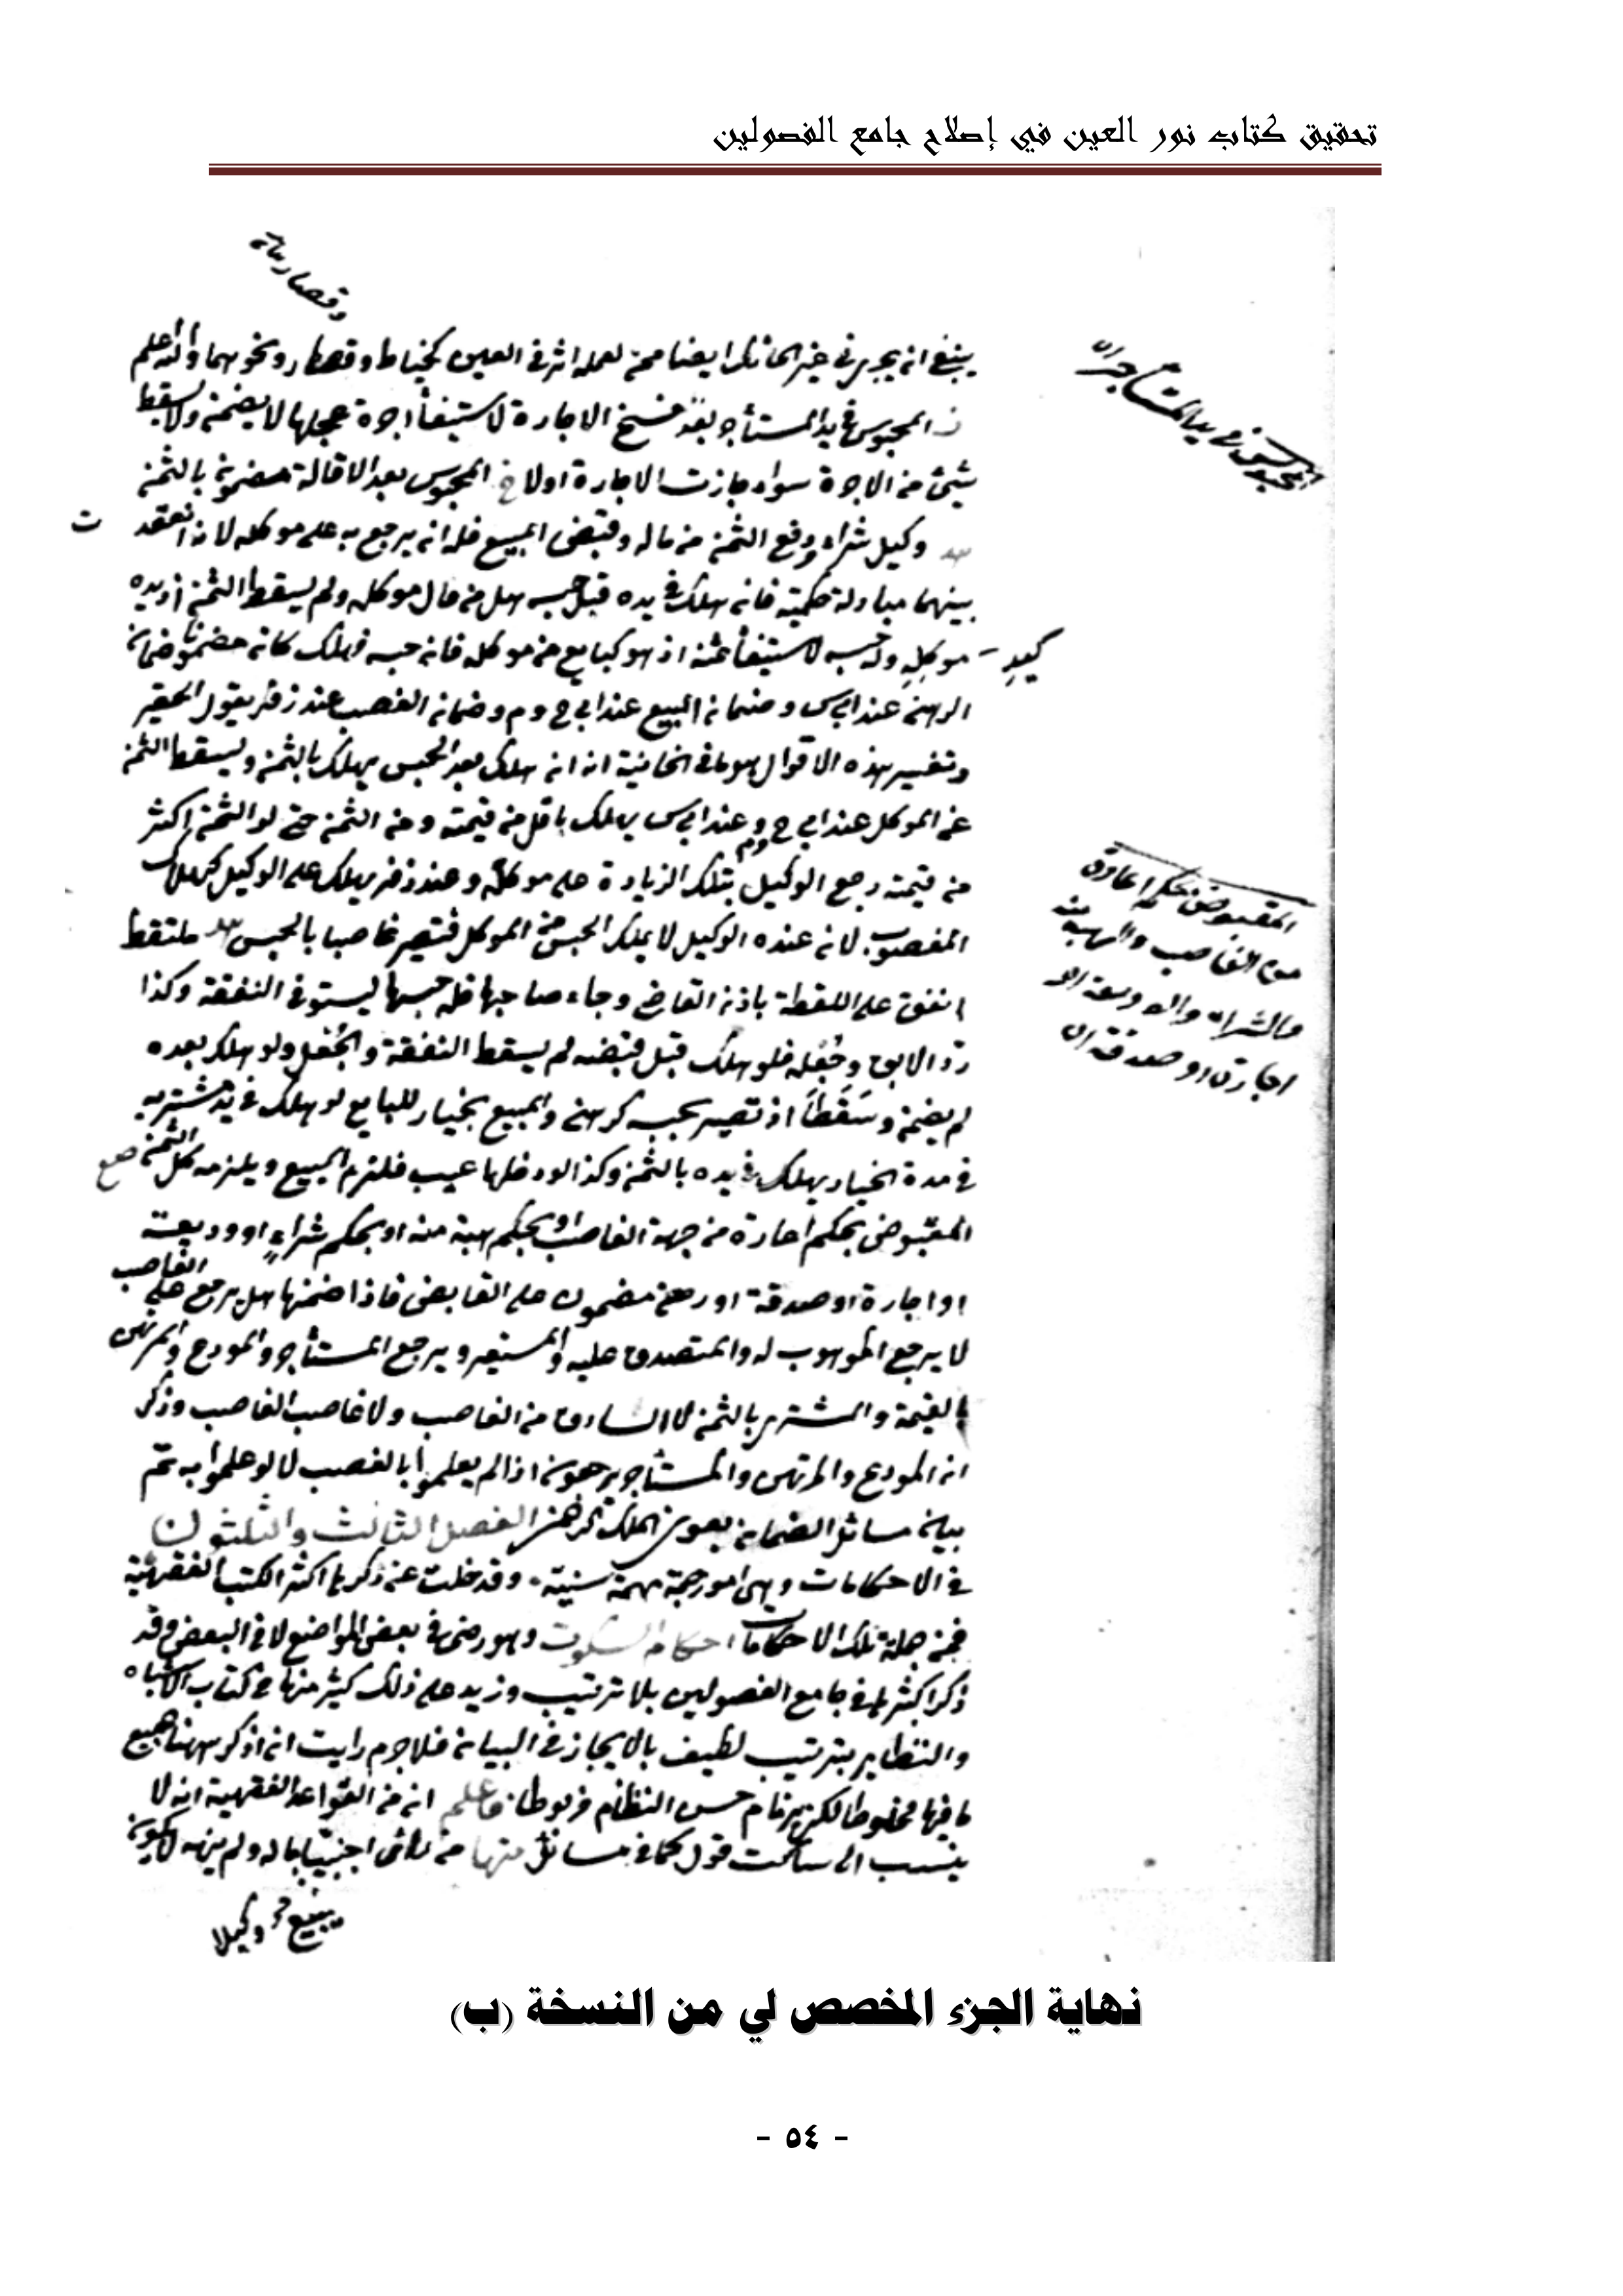 تحقيق كتاب نور العين في إصلاح جامع الفصولين
وقصارة
ينبغي ان يجري في غير الحائك ايضا ممن لعمله اثر في العين كخياط وقصار ونحوهما والله اعلم
المحبوس في يد المستأجر بعد فسخ الاجارة لاستيفاء اجرة عجلها لا يضمن ولا يسقط
شيئ من الاجرة سواء جازت الاجارة اولا المحبوس بعد الاقالة مضمون بالثمن
وكيل شراء ودفع الثمن من ماله وقبض المبيع فله ان يرجع به على موكله لانه انعقد
بينهما مبادلة حكمية فان هلك في يده قبل حبسه هلك من مال موكله ولم يسقط الثمن اذ يده
كيد موكله وله حبسه لاستيفاء ثمنه اذ هو كبايع من موكله فان حبسه فهلك كان مضمونا ضمان
الرهن عند ابي س وضمان المبيع عند ابي ح وم وضمان الغصب عند زفر يقول الحقير
وتفسير هذه الاقوال هو ما في الخانية انه ان هلك بعد الحبس يهلك بالثمن ويسقط الثمن
عن الموكل عند ابي ح وم وعند ابي س يهلك باقل من قيمته ومن الثمن حتى لو الثمن اكثر
من قيمته رجع الوكيل بتلك الزيادة على موكله وعند زفر يهلك على الوكيل كهلاك
المغصوب لان عنده الوكيل لا يملك الحبس من الموكل فيصير غاصبا بالحبس ملتقط
انفق على اللقطة باذن القاضي وجاء صاحبها فله حبسها ليستوفي النفقة وكذا
رد الابق وجعله فلو هلك قبل قبضه لم يسقط النفقة والجعل ولو هلك بعده
لم يضمن وسقطا اذ تصير بحبسه كرهن والمبيع بخيار للبايع لو هلك في يد مشتريه
في مدة الخيار يهلك في يده بالثمن وكذا لو دخلها عيب فلزم المبيع ويلزمه كل الثمن
المقبوض بحكم اعارة من جهة الغاصب او بحكم هبة منه او بحكم شراء او وديعة
او اجارة او صدقة او رهن مضمون على القابض فاذا ضمنها هل يرجع على الغاصب
لا يرجع الموهوب له والمتصدق عليه والمستعير ويرجع المستأجر والمودع والمرتهن
بالقيمة والمشتري بالثمن لا السارق من الغاصب ولا غاصب الغاصب وذكر
ان المودع والمرتهن والمستأجر يرجعون اذا لم يعلموا بالغصب لا لو علموا به تم
بيان مسائل الضمان بعون الملك الرحمن الفصل الثالث والثلثون
في الاحكامات وهي امور جمة مهمة سنية وقد خلت عن ذكرها اكثر الكتب الفقهية
فمن جملة تلك الاحكامات احكام السكوت وهو رضى في بعض المواضع لا في البعض وقد
ذكر اكثرها في جامع الفصولين بلا ترتيب وزيد على ذلك كثير منها في كتاب الاشباه
والنظاير بترتيب لطيف بالايجاز في البيان فلاجرم رايت ان اذكر ههنا جميع
ما فيها مخلوطا لكن حسن النظام مربوطا فاعلم ان من القواعد الفقهية انه لا
ينسب الى ساكت قول كما في مسائل منها من رأى اجنبيا بماله ولم ينهه لا يكون
يبيع وكيلا
المحبوس في يد المستأجر
المقبوض بحكم اعارة
من الغاصب والهبة منه
والشراء والوديعة او
اجارة او صدقة
نهاية الجزء المخصص لي من النسخة (ب)
- ٥٤ -